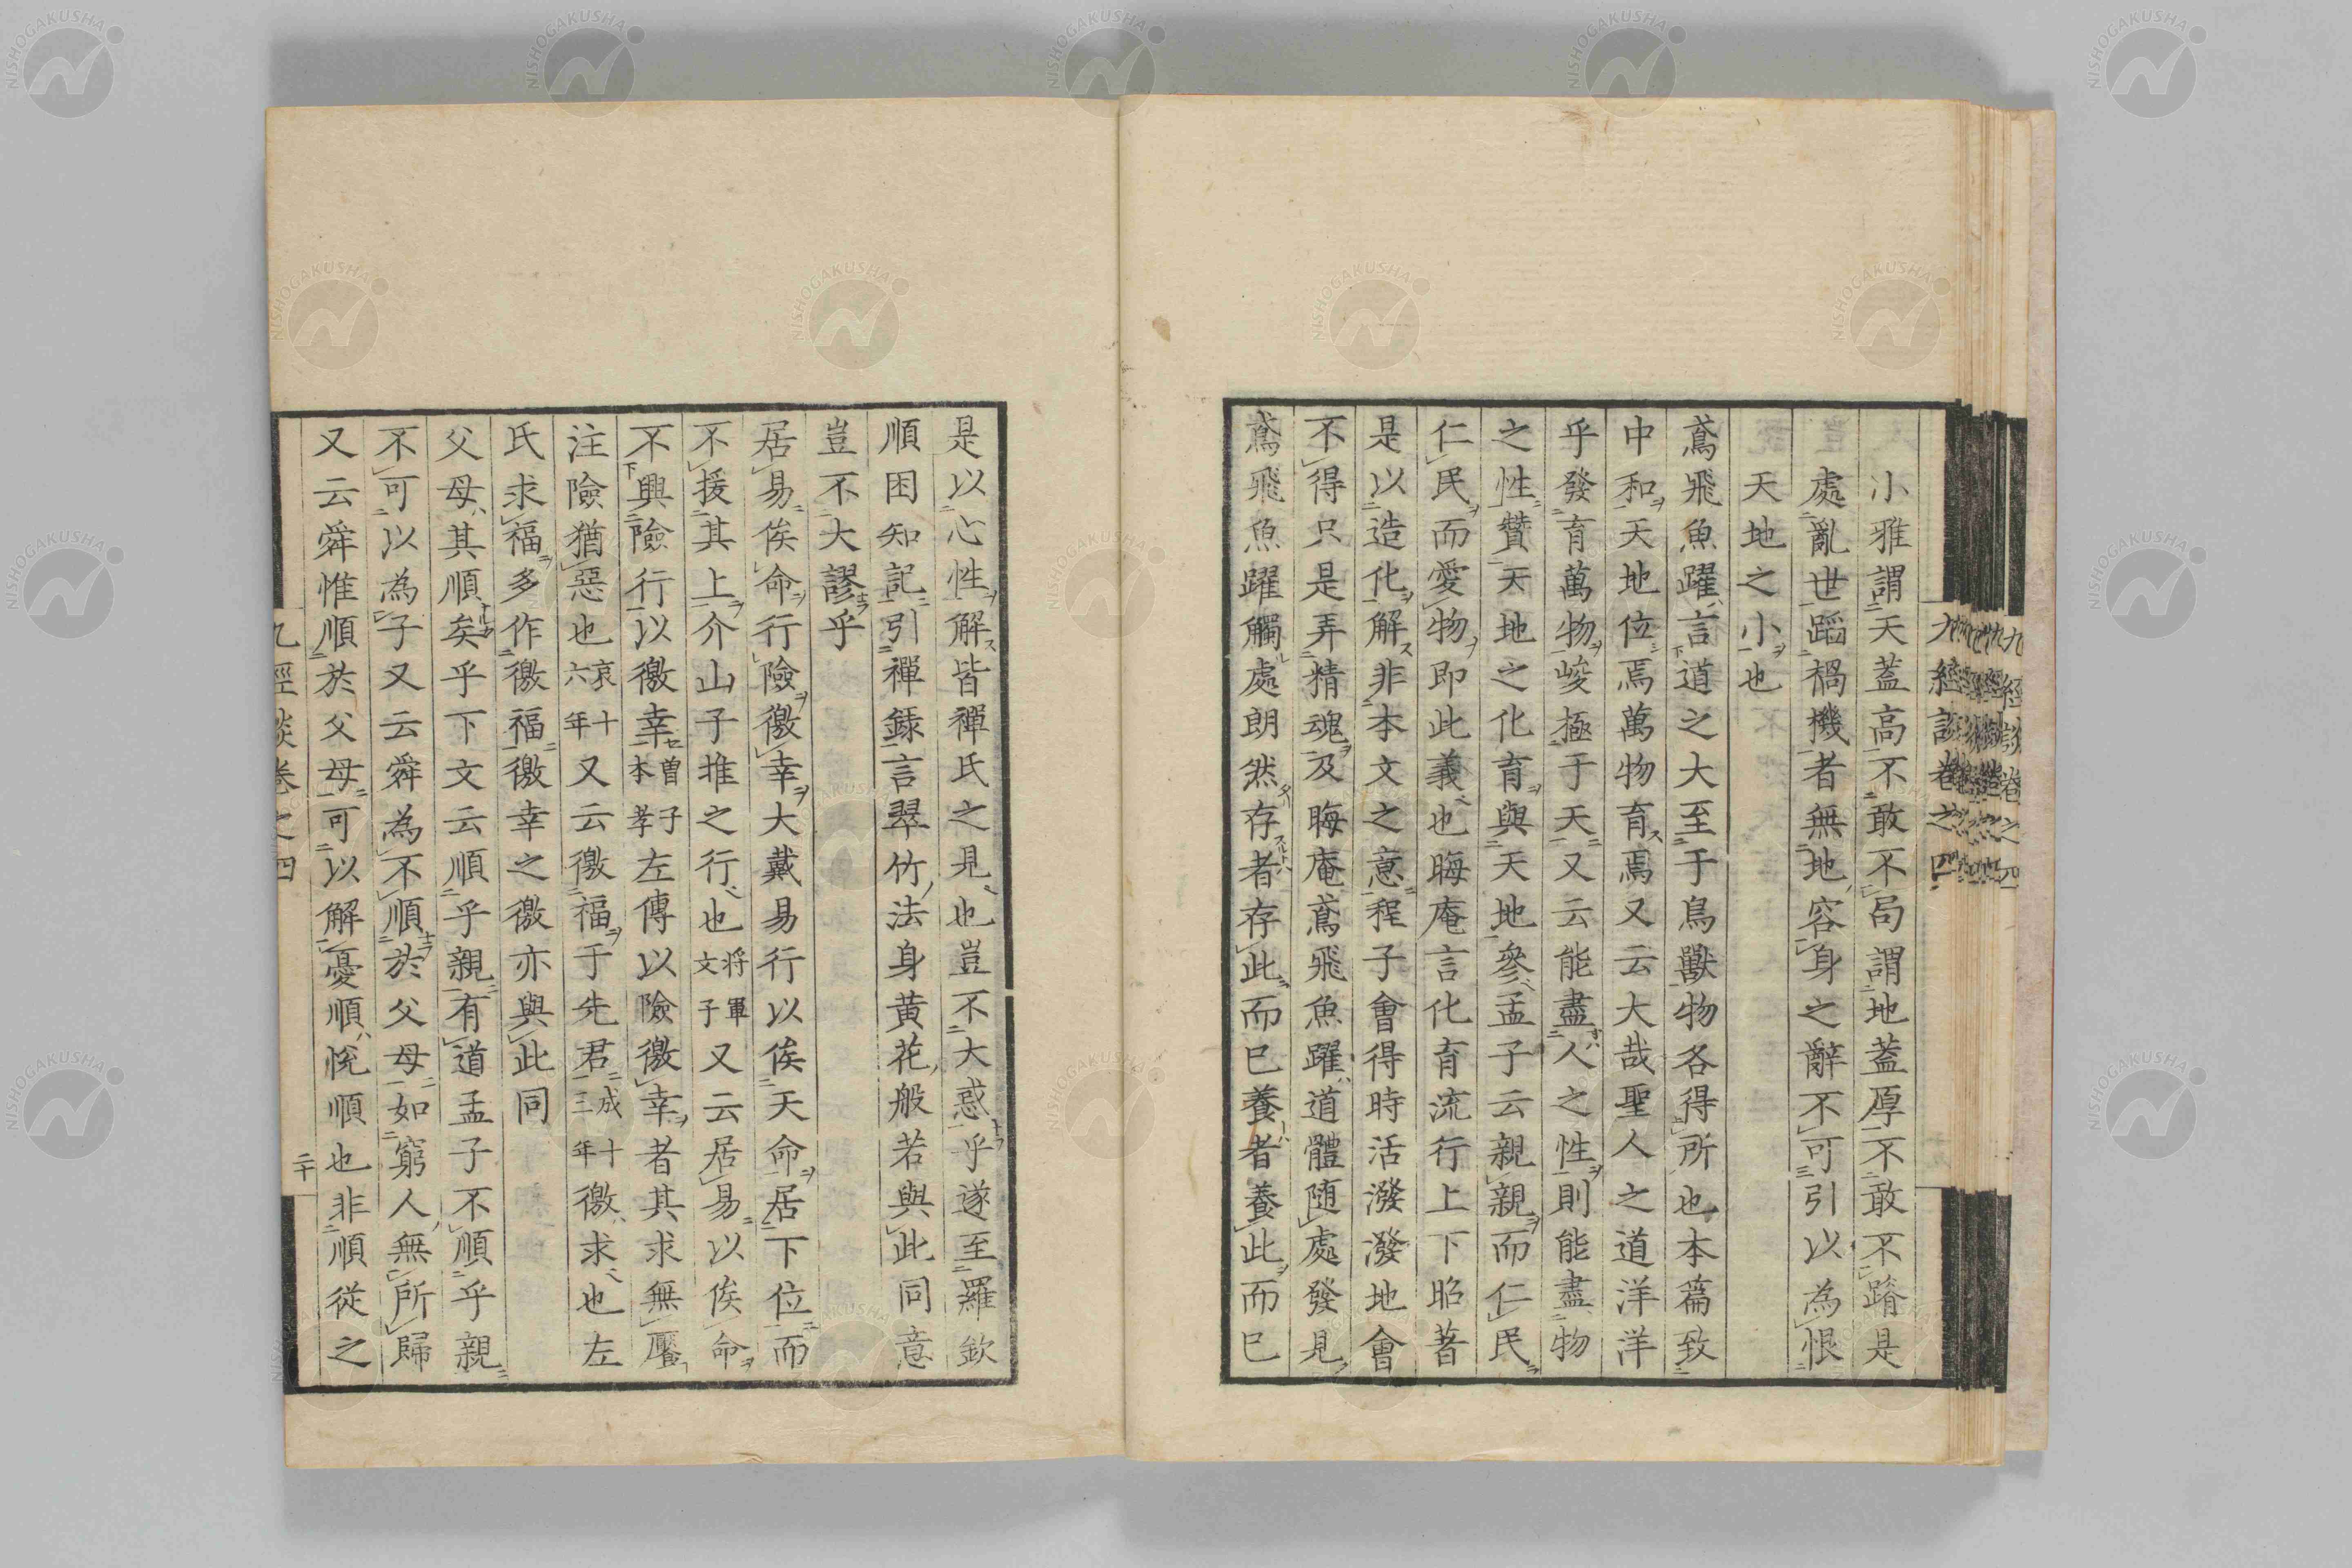 小雅謂天蓋高不敢不局謂地蓋厚不敢不蹐是
處亂世蹈禍機者無地容身之辭不可引以為恨
天地之小也
鳶飛魚躍言道之大至于鳥獸物各得所也本篇致
中和天地位焉萬物育焉又云大哉聖人之道洋洋
乎發育萬物峻極于天又云能盡人之性則能盡物
之性贊天地之化育與天地參孟子云親親而仁民
仁民而愛物即此義也晦庵言化育流行上下昭著
是以造化解非本文之意程子會得時活潑潑地會
不得只是弄精魂及晦庵鳶飛魚躍道體随處發見
鳶飛魚躍觸處朗然存者存此而已養者養此而已
九經談卷之四
是以心性解皆禪氏之見也豈不大惑乎遂至羅欽
順困知記引禪録言翠竹法身黄花般若與此同意
豈不大謬乎
居易俟命行險徼幸大戴易行以俟天命居下位而
不援其上介山子推之行也將軍文子又云居易以俟命
不興險行以徼幸曽子本孝左傳以險徼幸者其求無饜
注險猶惡也哀十六年又云徼福于先君成十三年徼求也左
氏求福多作徼福徼幸之徼亦與此同
父母其順矣乎下文云順乎親有道孟子不順乎親
不可以為子又云舜為不順於父母如窮人無所歸
又云舜惟順於父母可以解憂順悅順也非順從之
九經談卷之四
二十
NISHOGAKUSHA